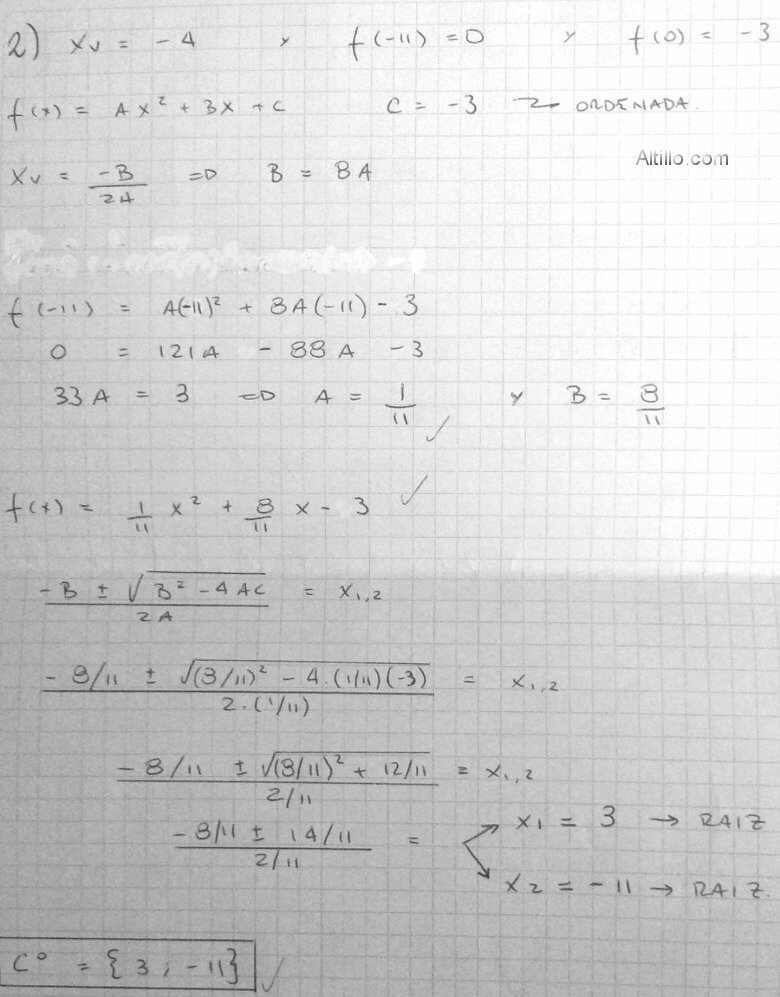 2) Xv = -4 y f(-11) = 0 y f(0) = -3
f(x) = Ax² + Bx + C C = -3 → ORDENADA.
Altillo.com
Xv = -B/2A => B = 8A
f(-11) = A(-11)² + 8A(-11) - 3
0 = 121A - 88A - 3
33A = 3 => A = 1/11 ✓ y B = 8/11
f(x) = 1/11 x² + 8/11 x - 3 ✓
(-B ± √(B² - 4AC))/2A = X1,2
(-8/11 ± √((8/11)² - 4.(1/11)(-3)))/(2.(1/11)) = X1,2
(-8/11 ± √((8/11)² + 12/11))/(2/11) = X1,2
(-8/11 ± 14/11)/(2/11) =
X1 = 3 → RAIZ
X2 = -11 → RAIZ.
C° = {3 ; -11} ✓